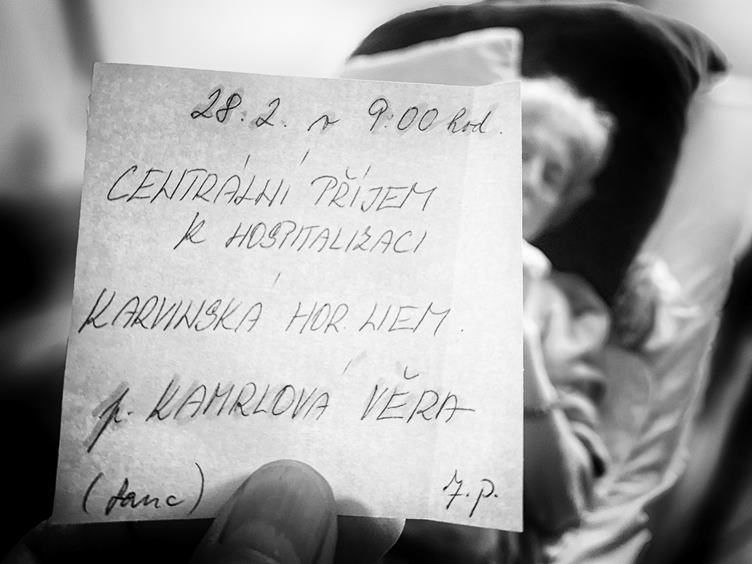 28.2. v 9:00 hod.
CENTRÁLNÍ PŘÍJEM
K HOSPITALIZACI
KARVINSKÁ HOR. NEM.
p. KAMRLOVÁ VĚRA
(sanc) 7.p.